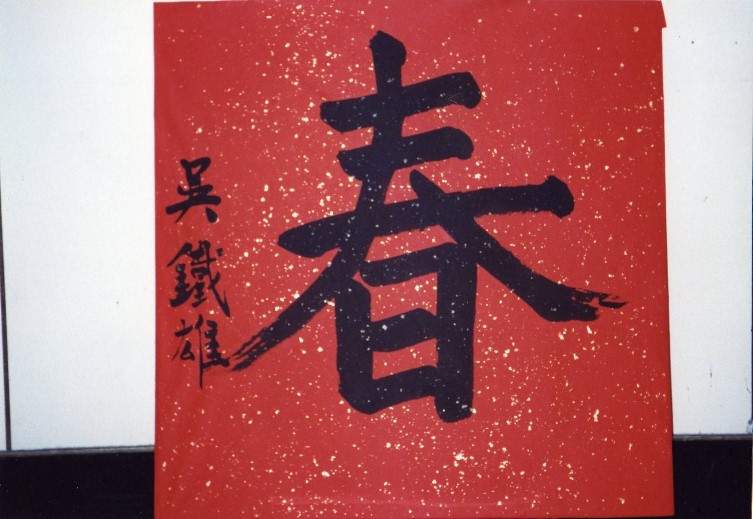 春
吳鐵雄